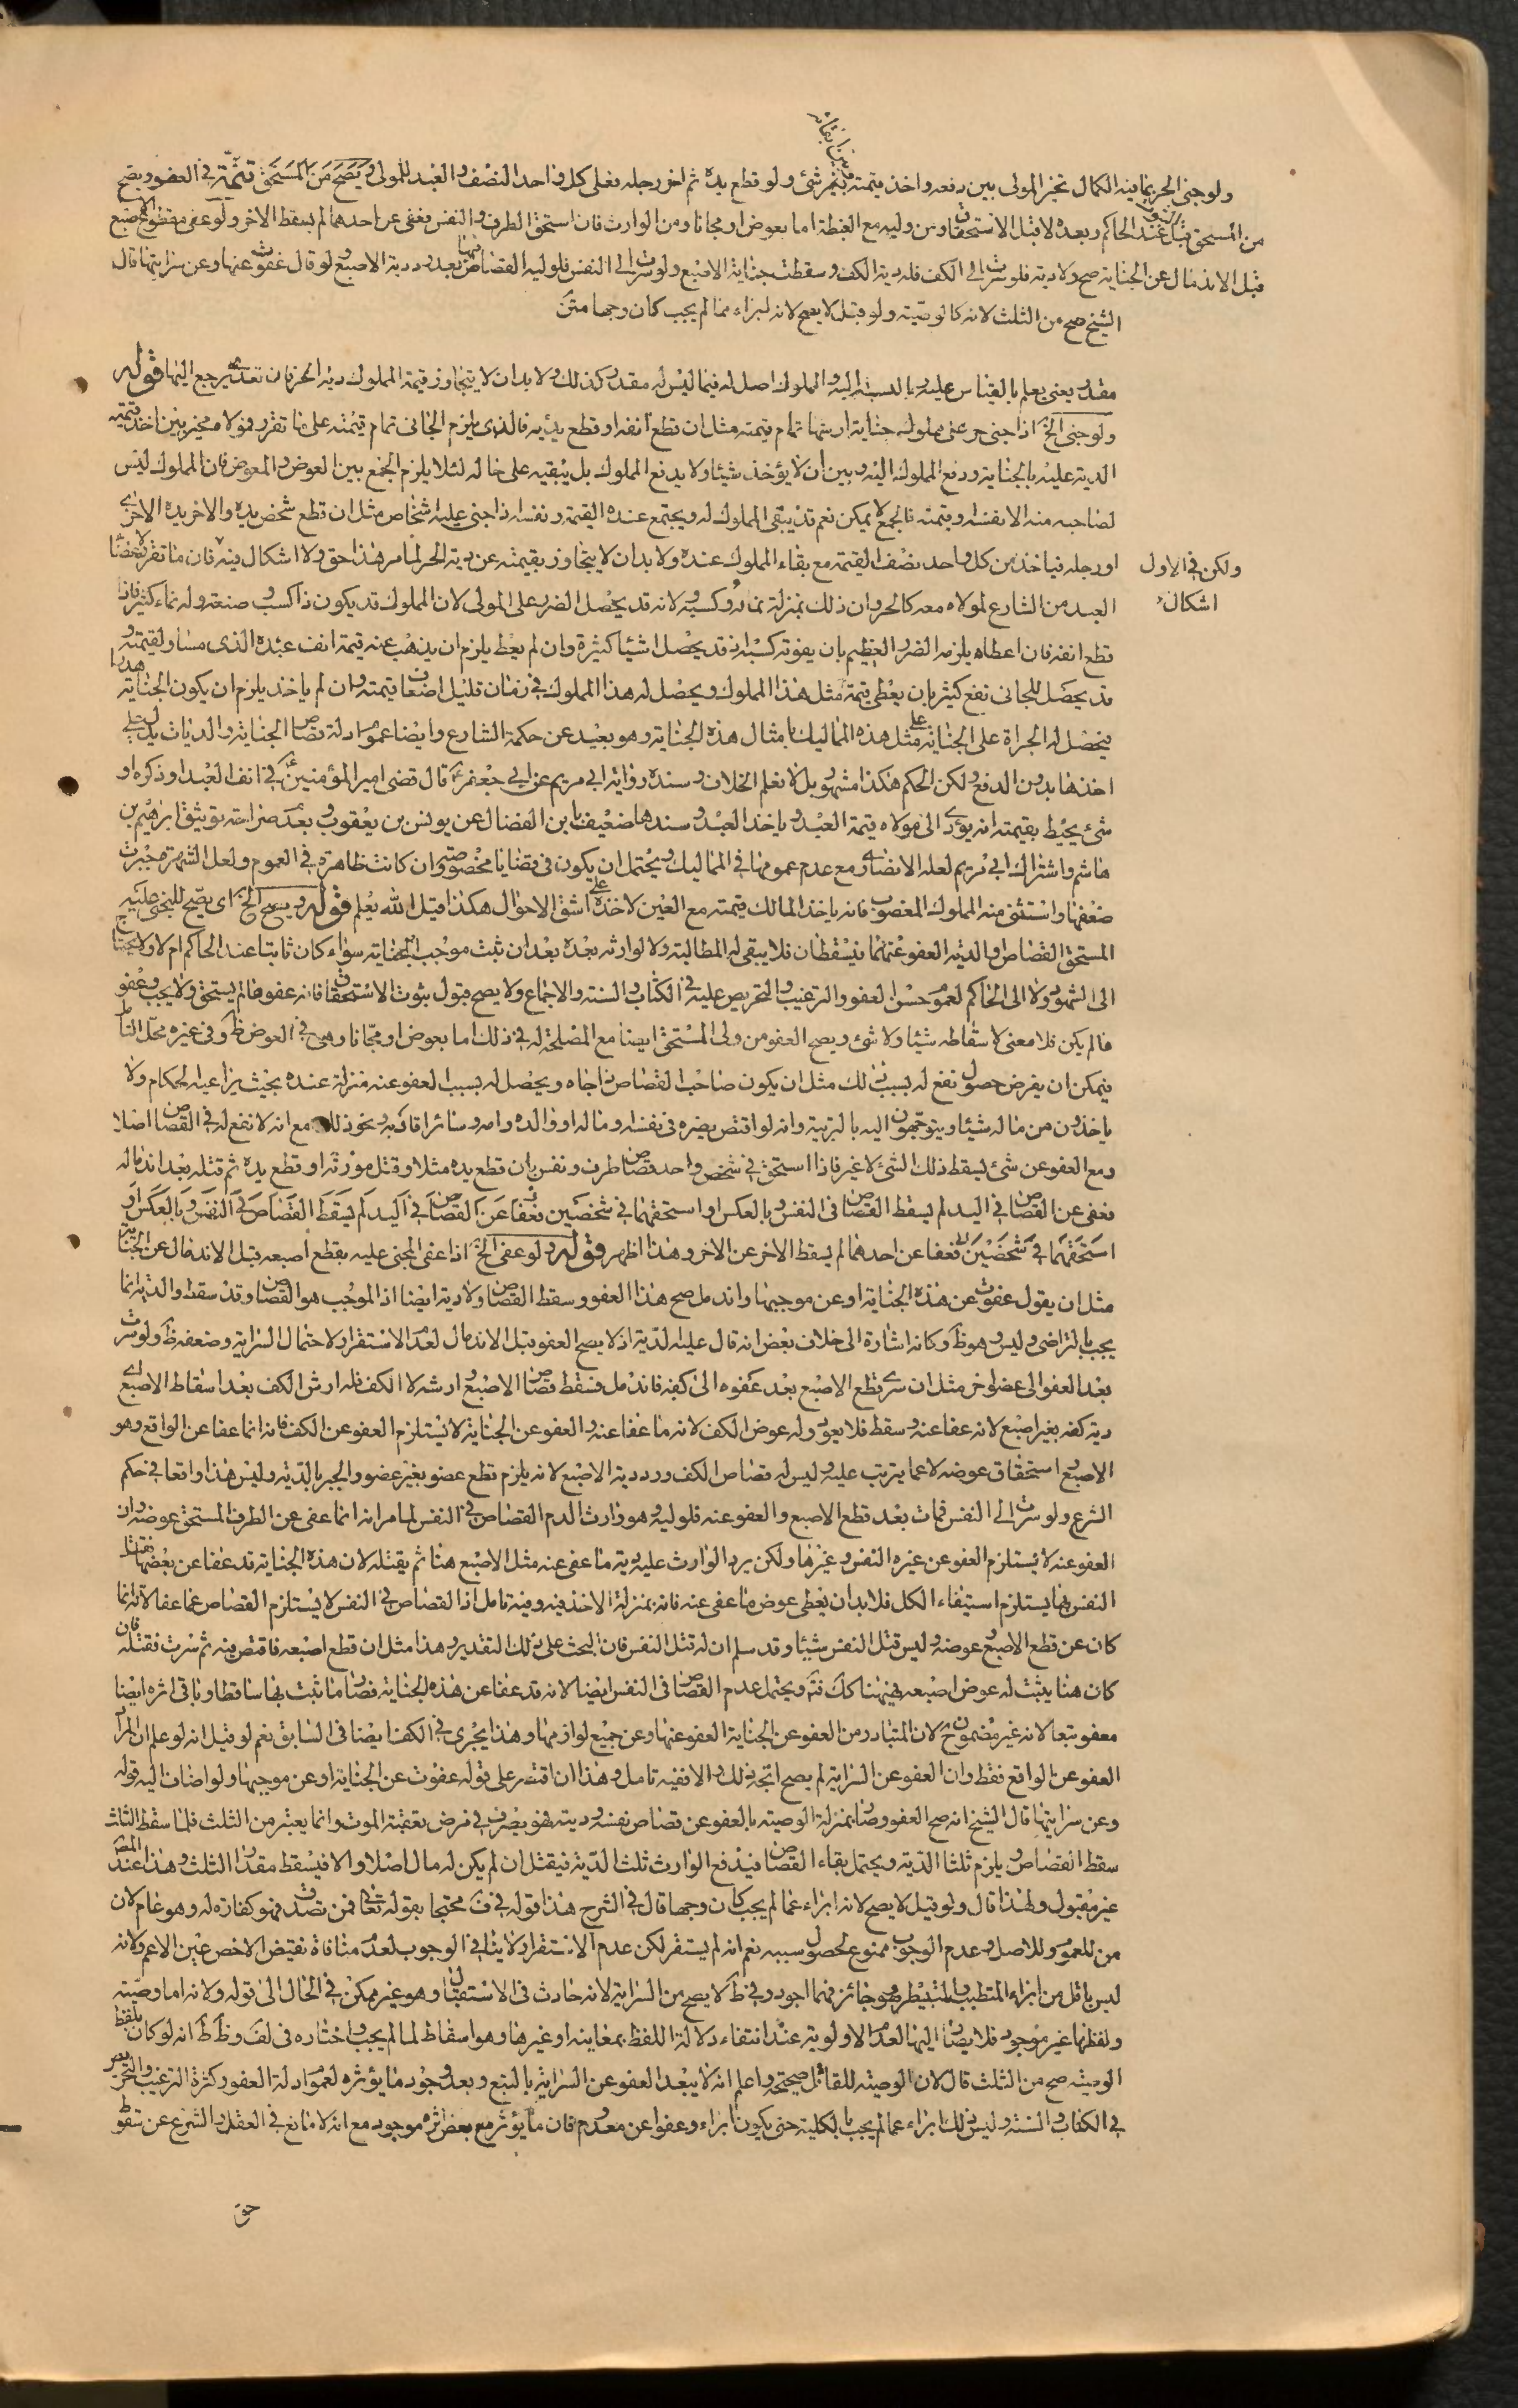 ولو جنى الحر بما فيه الكمال تخير المولى بين دفعه واخذ قيمته بغير شئ ولو قطع يده ثم اخر رجله فعلى كل واحد النصف والعبد للمولى ويصح من المستحق تتمة في العفو ويصح
من المستحق قبل الثبوت عند الحاكم وبعده لا قبل الاستحقاق ومن وليه مع الغبطة اما بعوض او مجانا ومن الوارث فان استحق الطرف والنفس فعفى عن احدهما لم يسقط الاخر ولو عفى مقطوع الاصبع
قبل الاندمال عن الجناية صح ولا دية فلو سرت الى الكف فله دية الكف وسقطت جناية الاصبع ولو سرت الى النفس فلوليه القصاص بعد رد دية الاصبع ولو قال عفوت عنها وعن سرايتها قال
الشيخ صح من الثلث لانه كالوصية ولو قيل لا يصح لانه ابراء مما لم يجب كان وجها متن
مقدر يعنى يعلم بالقياس عليه بالنسبة اليه والمملوك اصل له فيما ليس له مقدر كذلك ولا بد ان لا يتجاوز قيمة المملوك دية الحر فان تعدى يرجع اليها قوله
ولو جنى الخ اذا جنى حر على مملوك جناية ارشها تمام قيمته مثل ان قطع انفه او قطع يديه فالذى يلزم الجانى تمام قيمته على ما تقرر فمولاه مخير بين اخذ قيمته
الدية عليه بالجناية ودفع المملوك اليه وبين ان لا يؤخذ شيئا ولا يدفع المملوك بل يبقيه على حاله لئلا يلزم الجمع بين العوض والمعوض فان المملوك ليس
لصاحبه منه الا نفسه وقيمته فالجمع لا يمكن نعم قد يبقى المملوك له ويجتمع عنده القيمة ونفسه اذا جنى عليه اشخاص مثل ان قطع شخص يده والاخر يده الاخرى
او رجله فياخذ من كل واحد نصف القيمة مع بقاء المملوك عنده ولا بد ان لا يتجاوز بقيمته عن دية الحر لما مر هذا حق ولا اشكال فيه فان ما تقرر
ولكن في الاول
اشكال
العبد من الشارع لمولاه معه كالحر وان ذلك بمنزلة نمائه وكسبه لانه قد يحصل الضرر على المولى لان المملوك قد يكون ذا كسب وصنعة وله نماء كثير فاذا
قطع انفه فان اعطاه يلزمه الضرر العظيم بان يفوته كسبه اذ قد يحصل اشيا كثيرة وان لم يعط يلزم ان يذهب عنه قيمة انف عبده الذى مساو لقيمته و
قد يحصل للجانى نفع كثير بان يعطى قيمة مثل هذا المملوك ويحصل له هذا المملوك في زمان قليل اضعاف قيمته وان لم ياخذ يلزم ان يكون الجناية هدرا
فيحصل له الجراة على الجناية على مثل هذه المماليك بامثال هذه الجناية وهو بعيد عن حكمة الشارع وايضا عموم ادلة قصاص الجناية والديات يدل على
اخذها بدون الدفع ولكن الحكم هكذا مشهور بل لا نعلم الخلاف وسنده رواية ابى مريم عن ابى جعفر ع قال قضى امير المؤمنين ع في انف العبد او ذكره او
شئ يحيط بقيمته انه يؤدى الى مولاه قيمة العبد وياخذ العبد وسندها ضعيف بابن الفضال عن يونس بن يعقوب وبعدم صراحة توثيق ابرهيم بن
هاشم واشتراك ابى مريم لعله الانصارى مع عدم عمومها في المماليك ويحتمل ان يكون في قضايا مخصوصة وان كانت ظاهرة في العموم ولعل الشهرة جبرت
ضعفها واستثنى منه المملوك المغصوب فانه ياخذ المالك قيمته مع العين لاخذه على اشق الاحوال هكذا قيل الله يعلم قوله ويصح الخ اى يصح للمجنى عليه
المستحق القصاص والدية العفو عنهما فيسقطان فلا يبقى له المطالبة ولا لوارثه بعده بعد ان ثبت موجب الجناية سواء كان ثابتا عند الحاكم ام لا ولا يحتاج
الى الشهود ولا الى الحاكم لعموم حسن العفو والترغيب والتحريص عليه في الكتاب والسنة والاجماع ولا يصح قبول ثبوت الاستحقاق فانه عفو مما لم يستحق ولا يجب وعفو
مالم يكن فلا معنى لاسقاطه شيئا ولا شئ ويصح العفو من ولى المستحق ايضا مع المصلحة له في ذلك اما بعوض او مجانا وهى في العوض ظ وفى غيره محل التامل
فيمكن ان يفرض حصول نفع له بسبب ذلك مثل ان يكون صاحب القصاص ذا جاه ويحصل له بسبب العفو عنه منزلة عنده بحيث يراعيه الحكام ولا
ياخذون من ماله شيئا ويتوجهون اليه بالتربية وانه لو اقتص يضره في نفسه وماله او والده وامه وسائر اقاربه ونحو ذلك مع انه لا نفع له في القصاص اصلا
ومع العفو عن شئ يسقط ذلك الشئ لا غير فاذا استحق في شخص واحد قصاص طرف ونفس بان قطع يده مثلا وقتل مورثه او قطع يده ثم قتله بعد اندماله
فعفى عن القصاص في اليد لم يسقط القصاص في النفس وبالعكس او استحقهما في شخصين فعفا عن القصاص في اليد لم يسقط القصاص في النفس وبالعكس او
استحقهما في شخصين فعفا عن احدهما لم يسقط الاخر عن الاخر وهذا اظهر قوله ولو عفى الخ اذا عفى المجنى عليه بقطع اصبعه قبل الاندمال عن الجناية
مثل ان يقول عفوت عن هذه الجناية او عن موجبها واندمل صح هذا العفو وسقط القصاص ولا دية ايضا اذ الموجب هو القصاص وقد سقط والدية انما
يجب بالتراضى وليس وهو ظ وكانه اشارة الى خلاف بعض انه قال عليه الدية اذ لا يصح العفو قبل الاندمال لعدم الاستقرار ولاحتمال السراية وضعفه ظ ولو سرت
بعد العفو الى عضو اخر مثل ان سرى قطع الاصبع بعد عفوه الى كفه فاندمل فسقط قصاص الاصبع وارشه لا الكف فله ارش الكف بعد اسقاط الاصبع اى
دية كفه بغير اصبع لانه عفا عنه وسقط فلا يعود وله عوض الكف لانه ما عفا عنه والعفو عن الجناية لا يستلزم العفو عن الكف فانه انما عفا عن الواقع وهو
الاصبع واستحقاق عوضه لا عما يترتب عليه وليس له قصاص الكف ورد دية الاصبع لانه يلزم قطع عضو بغير عضو والجبر بالدية وليس هذا واقعا في حكم
الشرع ولو سرت الى النفس فمات بعد قطع الاصبع والعفو عنه فلوليه وهو وارث الدم القصاص في النفس لما مر انه انما عفى عن الطرف المستحق عوضه وان
العفو عنه لا يستلزم العفو عن غيره النفس وغيرها ولكن يرد الوارث عليه دية ما عفى عنه مثل الاصبع هنا ثم يقتله لان هذه الجناية قد عفا عن بعضها
النفس بها يستلزم استيفاء الكل فلا بد ان يعطى عوض ما عفى عنه فانه بمنزلة الاخذ فيه وفيه تامل اذ القصاص في النفس لا يستلزم القصاص عما عفا لانه انما
كان عن قطع الاصبع وعوضه وليس قتل النفس شيئا وقد سلم ان له قتل النفس فان البحث على ذلك التقدير وهذا مثل ان قطع اصبعه فاقتص منه ثم سرت فقتله فان
كان هنا يثبت له عوض اصبعه فيهنا كك فت ويحتمل عدم القصاص في النفس ايضا لانه قد عفا عن هذه الجناية فصار ما ثبت بها ساقطا وباقى اثره ايضا
معفو تبعا لانه غير مضمون ح لان المتبادر من العفو عن الجناية العفو عنها وعن جميع لوازمها وهذا يجرى في الكف ايضا في السابق نعم لو قيل انه لو علم ان المراد
العفو عن الواقع فقط وان العفو عن السراية لم يصح اتجه ذلك والا ففيه تامل وهذا ان اقتصر على قوله عفوت عن الجناية او عن موجبها ولو اضاف اليه قوله
وعن سرايتها قال الشيخ انه صح العفو وصار بمنزلة الوصية بالعفو عن قصاص نفسه وديته فهو يصرف في مرض تعقبه الموت وانما يعتبر من الثلث فلما سقط الثلث
سقط القصاص ويلزم ثلثا الدية ويحتمل بقاء القصاص فيدفع الوارث ثلث الدية فيقتل ان لم يكن له مال اصلا والا فيسقط مقدار الثلث وهذا عند المصنف
غير مقبول ولهذا قال ولو قيل لا يصح لانه ابراء عما لم يجب كان وجها قال في الشرح هذا قوله في ف محتجا بقوله تعالى فمن تصدق به فهو كفارة له وهو عام لان
من للعموم وللاصل وعدم الوجوب ممنوع لحصول سببه نعم انه لم يستقر لكن عدم الاستقرار لا ينافي الوجوب لعدم منافاة نقيض الاخص عين الاعم ولانه
ليس باقل من ابراء المتطبب والمتبيطر وهو جائز فهما اجود وفي ظ لا يصح من السراية لانه حادث في الاستقبال وهو غير ممكن في الحال الى قوله ولانه اما وصية
ولفظها غير موجود فلا يضاف اليها لعدم الاولوية عند انتفاء دلالة اللفظ بمعاينه او غيرها وهو اسقاط لما لم يجب واختاره في لف وظ ظ انه لو كان بلفظ
الوصية صح من الثلث قال لان الوصية للقاتل صحيحة واعلم انه لا يبعد العفو عن السراية بالتبع وبعد وجود ما يؤثره لعموم ادلة العفو وكثرة الترغيب والتحريص
في الكتاب والسنة وليس ذلك ابراء عما لم يجب بالكلية حتى يكون ابراء وعفوا عن معدوم فان ما يؤثر مع بعض اثره موجود مع انه لا مانع في العقل والشرع عن سقوط
حق